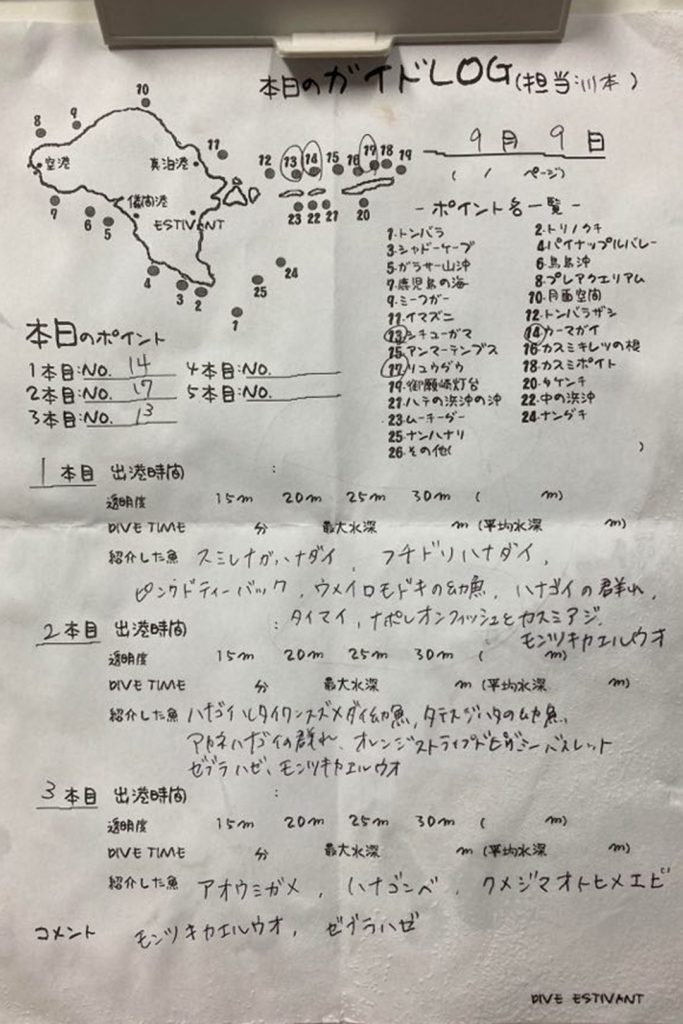 本日のガイドLOG(担当:川本 )
9月9日
( 1 ページ)
8 9 10 11 12 13 14 15 16 17 18 19
空港 真泊港
儀間港
ESTIVANT
7 6 5 23 22 21 20
4 3 2 1 25 24
-ポイント名一覧-
1.トンバラ 2.トリノクチ
3.シャドーケーブ 4.パイナップルバレー
5.ガラサー山沖 6.鳥島沖
7.鹿児島の海 8.プレアクエリアム
9.ミーフガー 10.月面空間
11.イマズニ 12.トンバラザシ
13.シチューガマ 14.カーマガイ
15.アンマーテンプス 16.カスミキレツの根
17.リュウグウ 18.カスミポイト
19.御願崎灯台 20.タケンチ
21.ハテの浜沖の沖 22.中の浜沖
23.ムーチーグー 24.ナングチ
25.ナンハナリ
26.その他( )
本日のポイント
1本目:NO. 14 4本目:NO.
2本目:NO. 17 5本目:NO.
3本目:NO. 13
1本目 出港時間 :
透明度 15m 20m 25m 30m ( m)
DIVE TIME 分 最大水深 m (平均水深 m)
紹介した魚 スミレナガハナダイ、フチドリハナダイ、
ピンクドティーバック、ウメイロモドキの幼魚、ハナゴイの群れ、
タイマイ、ナポレオンフィッシュとカスミアジ、
モンツキカエルウオ
2本目 出港時間 :
透明度 15m 20m 25m 30m ( m)
DIVE TIME 分 最大水深 m (平均水深 m)
紹介した魚 ハナゴイ タイワンスズメダイ幼魚、タテスジハタの幼魚、
アカネハナゴイの群れ、オレンジストライプドピグミーバスレット
ゼブラハゼ、モンツキカエルウオ
3本目 出港時間 :
透明度 15m 20m 25m 30m ( m)
DIVE TIME 分 最大水深 m (平均水深 m)
紹介した魚 アオウミガメ、ハナゴンベ、クメジマオトヒメエビ
コメント モンツキカエルウオ、ゼブラハゼ
DIVE ESTIVANT